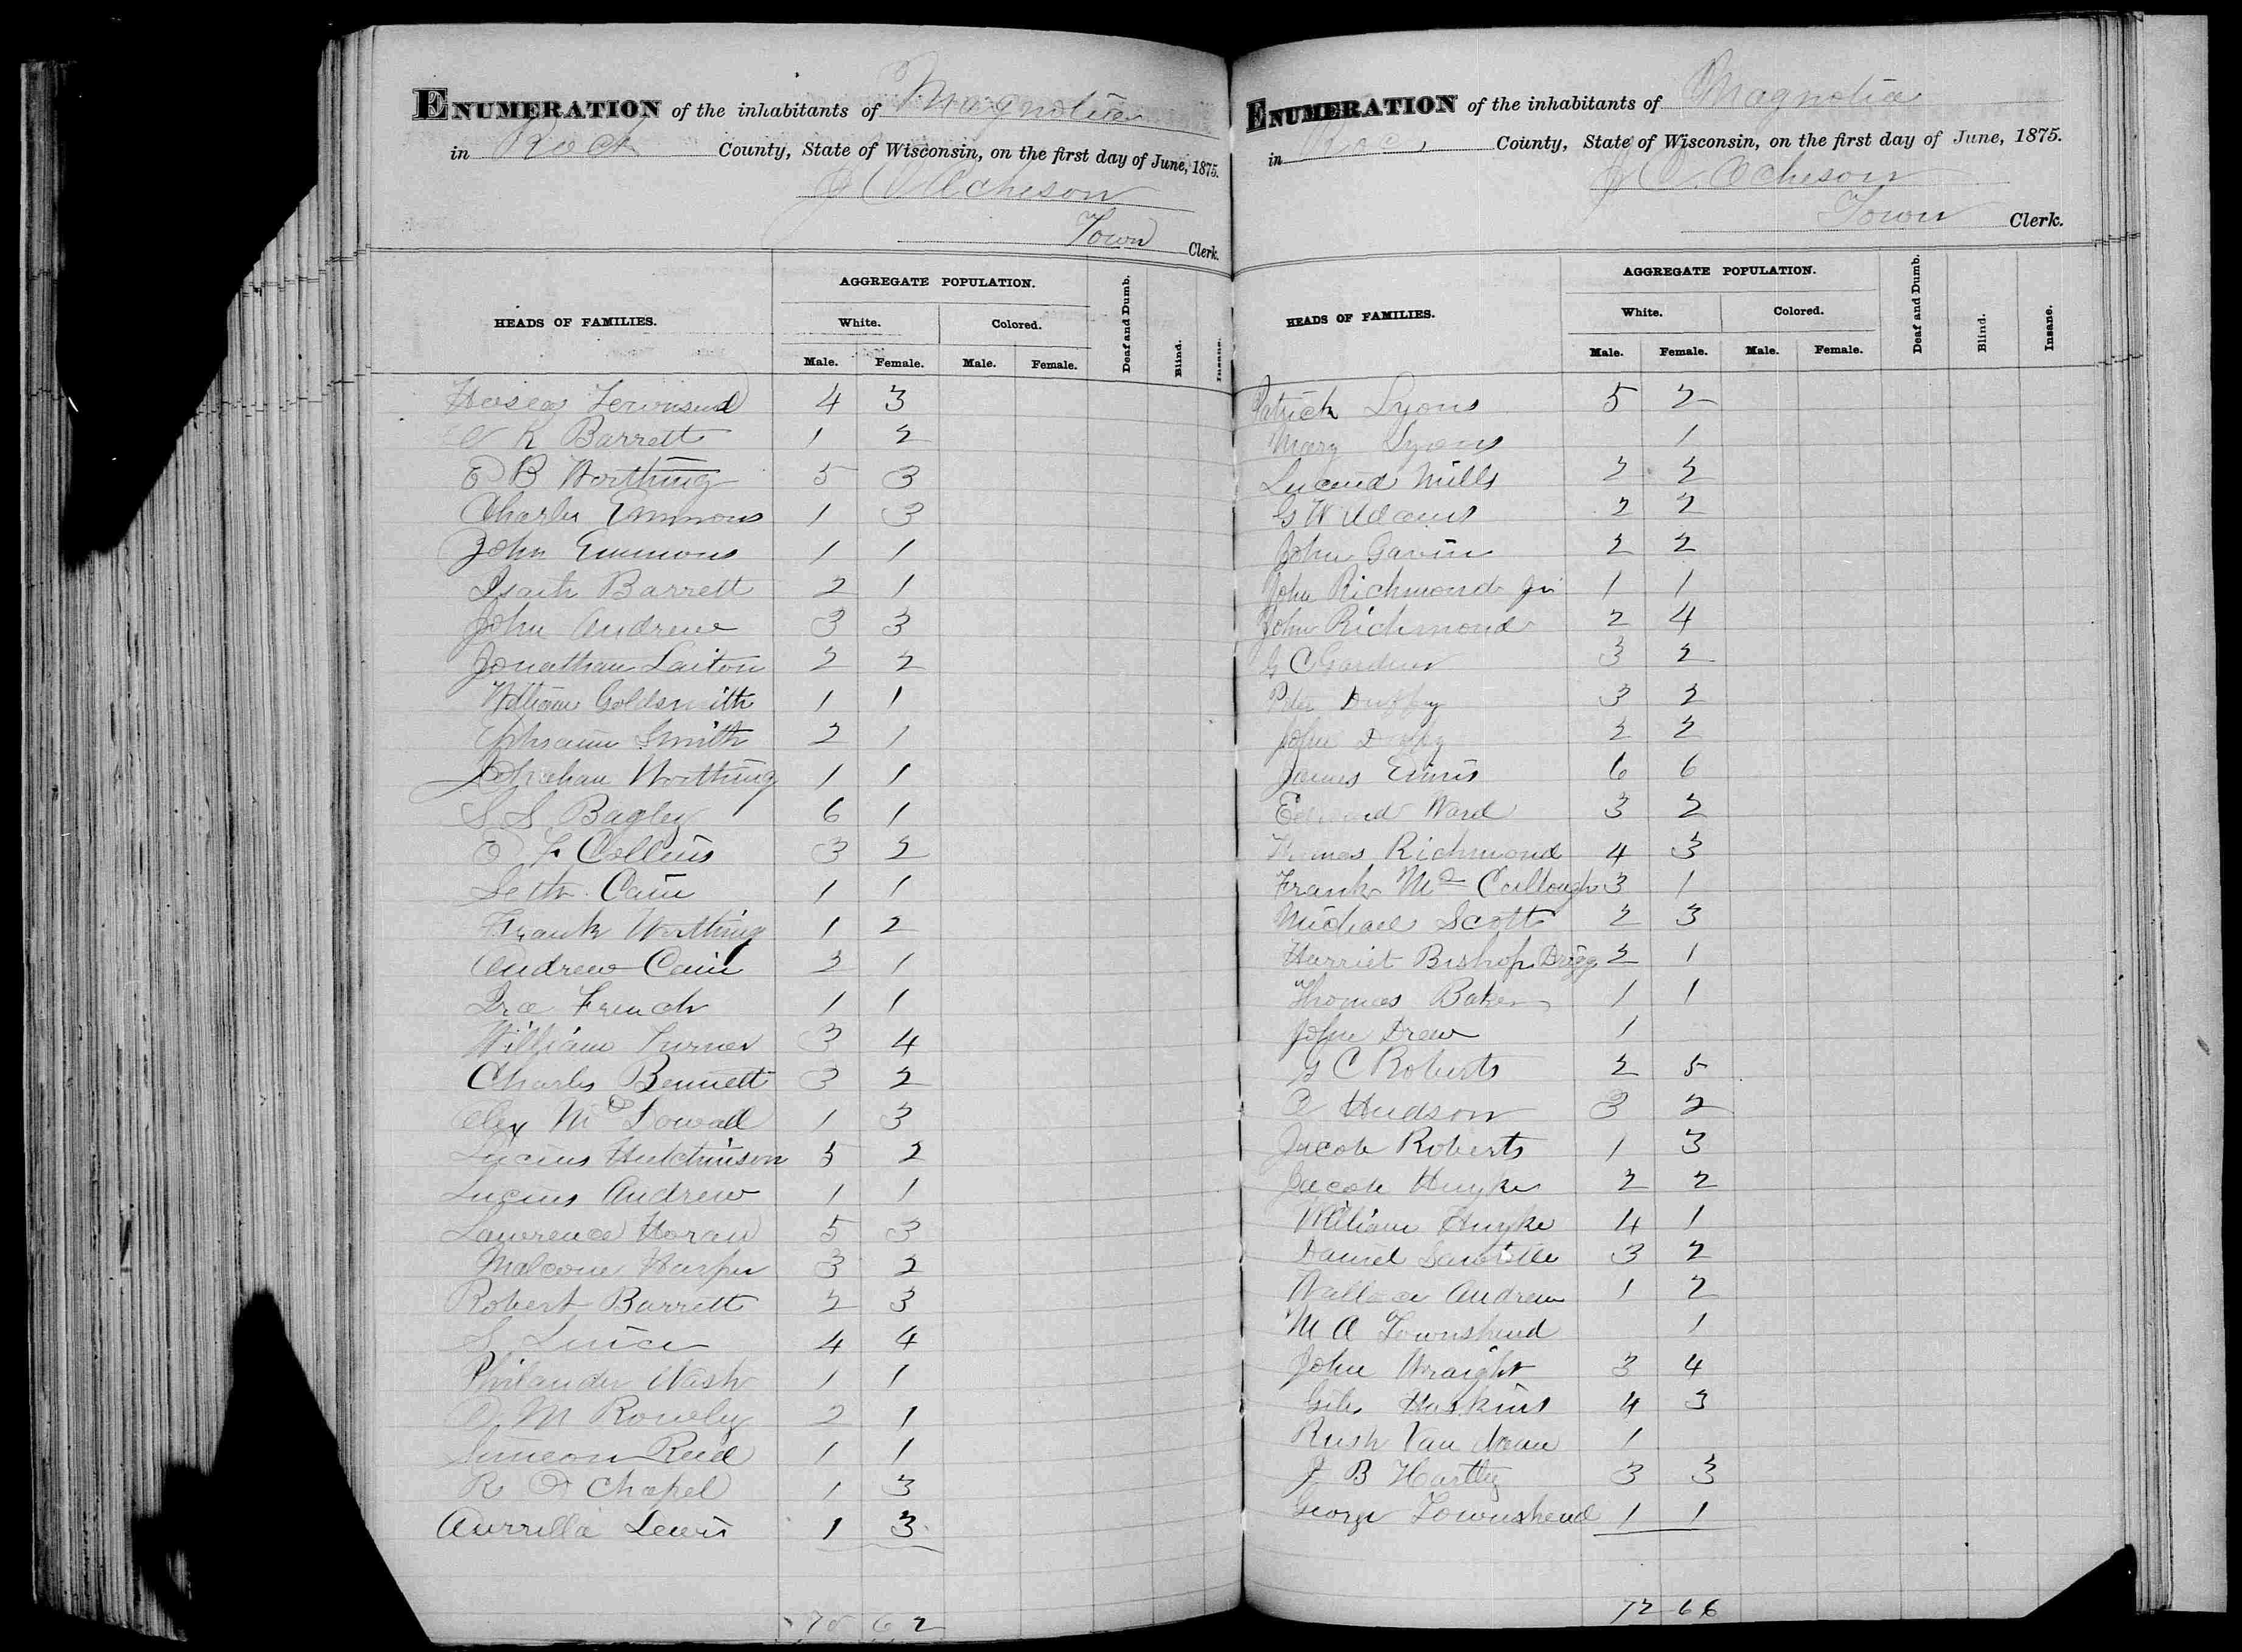 ENUMERATION of the inhabitants of Magnolia
in Rock County, State of Wisconsin, on the first day of June, 1875.
J A Acheson
Town Clerk.
HEADS OF FAMILIES.
AGGREGATE POPULATION.
Deaf and Dumb.
Blind.
Insane.
White.
Colored.
Male.
Female.
Male.
Female.
Hosea Townsend 4 3
K Barrett 1 2
O B Worthing 5 3
Charles Emmons 1 3
John Emmons 1 1
Isaih Barrett 2 1
John Andrew 3 3
Jonathan Laiton 2 2
William Goldsmith 1 1
Ephraim Smith 2 1
Worthing 1 1
S S Bagley 6 1
O F Collins 3 2
Seth Cain 1 1
Frank Worthing 1 2
Andrew Cain 3 1
Ira French 1 1
William Turner 3 4
Charles Bennett 3 2
Alex McDowall 1 3
Lucius Hutchinson 5 2
Lucius Andrew 1 1
Lawrence Horan 5 3
Malcome Harper 3 2
Robert Barrett 2 3
S 4 4
Philander Wash 1 1
O M Rowley 2 1
Simeon Reed 1 1
R O Chapel 1 3
Aurrilla Lewis 1 3
70 62
ENUMERATION of the inhabitants of Magnolia
in Roc County, State of Wisconsin, on the first day of June, 1875.
J A. Acheson
Town Clerk.
HEADS OF FAMILIES.
AGGREGATE POPULATION.
Deaf and Dumb.
Blind.
Insane.
White.
Colored.
Male.
Female.
Male.
Female.
Patrick Lyons 5 2
Mary Lyons 1
Lucind Mills 2 2
G W Adams 2 2
John Gavin 2 2
John Richmond Jr 1 1
John Richmond 2 4
G C Gardner 3 2
Peter Duffy 3 2
John 2 2
James Ennis 6 6
Edward Ward 3 2
Thomas Richmond 4 3
Frank Mc Cullough 3 1
Michael Scott 2 3
Harriet Bishop Brigg 2 1
Thomas Baker 1 1
John Drew 1
G C Roberts 2 5
A Hudson 3 2
Jacob Roberts 1 3
Jacob Huyke 2 2
William Huyke 4 1
Daniel 3 2
Wallace Andrew 1 2
M A Townshend 1
John Wraight 3 4
Giles Haskins 4 3
Rush Van 1
J B Hartly 3 3
George Townshend 1 1
72 66